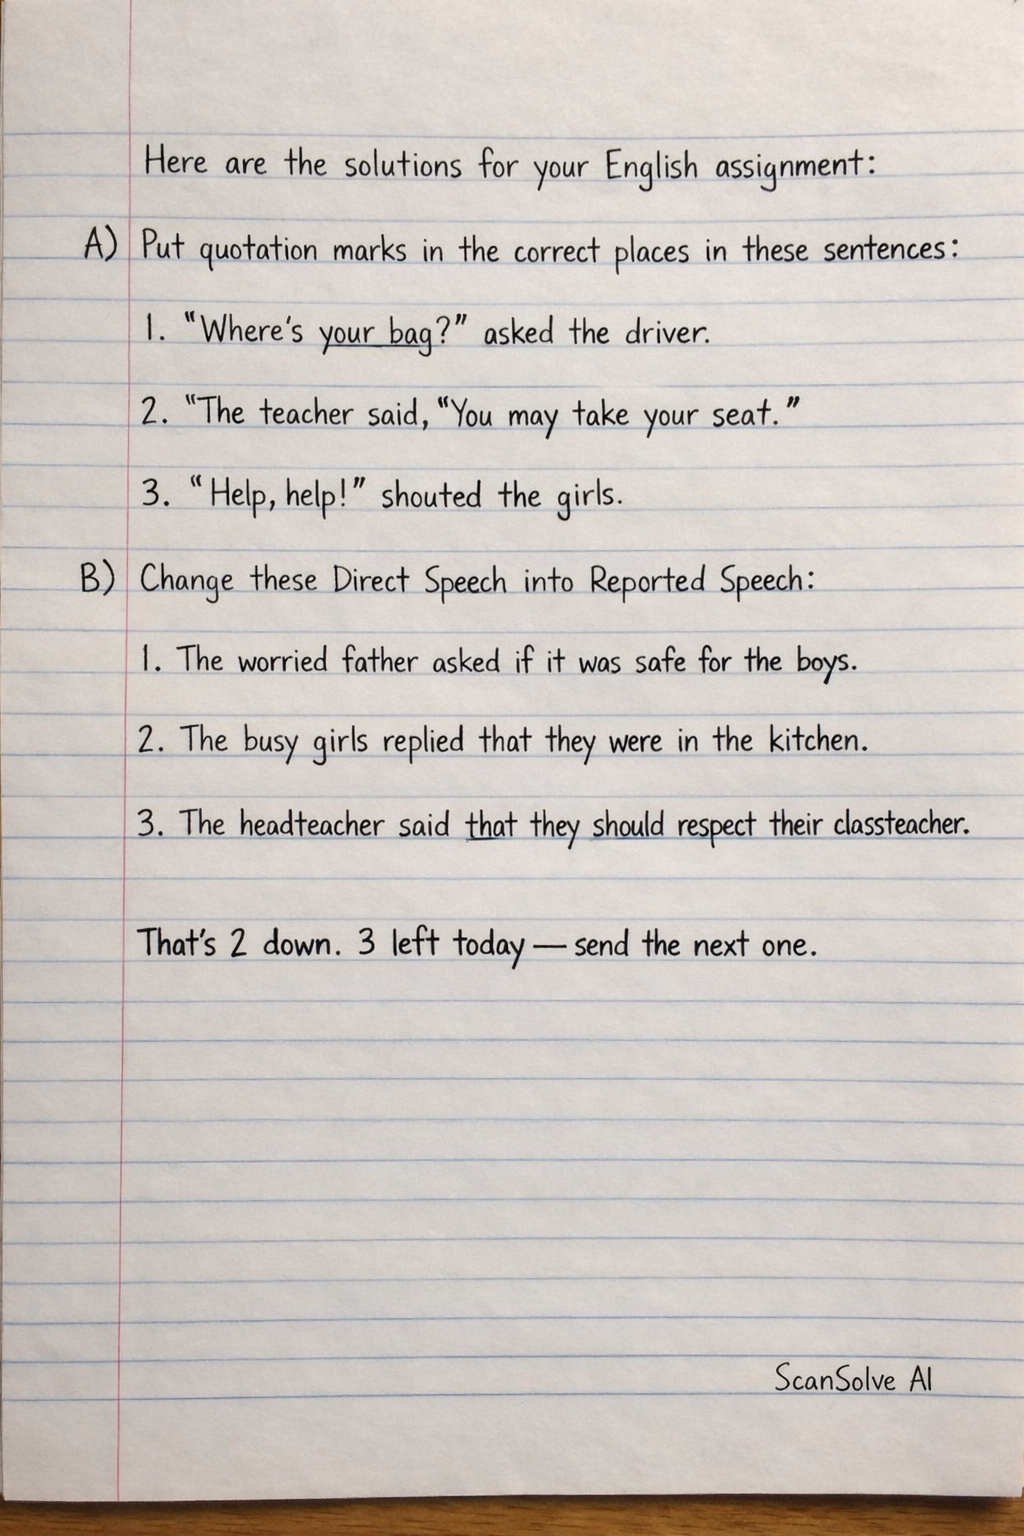 Here are the solutions for your English assignment:
A) Put quotation marks in the correct places in these sentences:
1. "Where's your bag?" asked the driver.
2. "The teacher said, "You may take your seat."
3. "Help, help!" shouted the girls.
B) Change these Direct Speech into Reported Speech:
1. The worried father asked if it was safe for the boys.
2. The busy girls replied that they were in the kitchen.
3. The headteacher said that they should respect their classteacher.
That's 2 down. 3 left today — send the next one.
ScanSolve AI